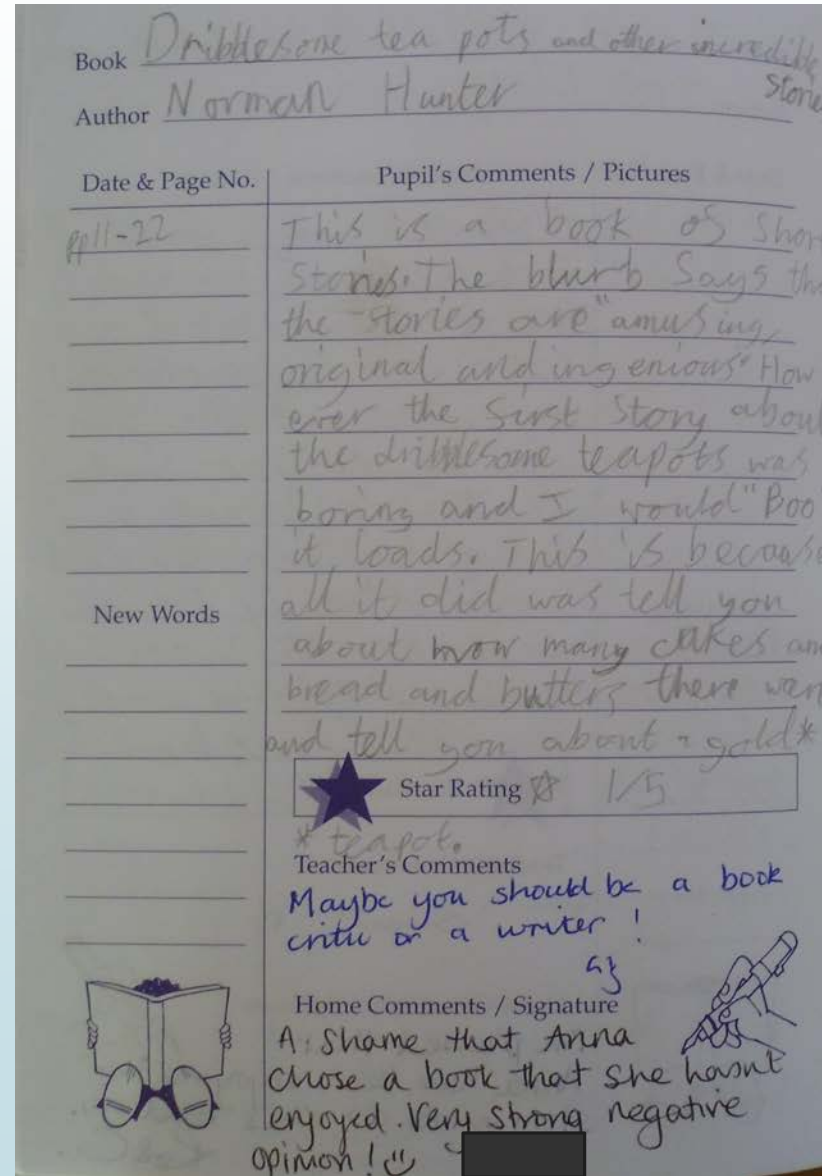 Book Dribblesome tea pots and other incredible
stories
Author Norman Hunter
Date & Page No.
Pupil's Comments / Pictures
pp11-22
This is a book of Short
Stories. The blurb Says that
the stories are "amusing,
original and ingenious" How
ever the first Story about
the dribblesome teapots was
boring and I would "Boo"
it loads. This is because
all it did was tell you
about how many cakes and
bread and butters there were
and tell you about a gold*
New Words
Star Rating ☆ 1/5
* teapot.
Teacher's Comments
Maybe you should be a book
critic or a writer!
Home Comments / Signature
A shame that Anna
chose a book that she hasnt
enjoyed. Very strong negative
opinion! ☺